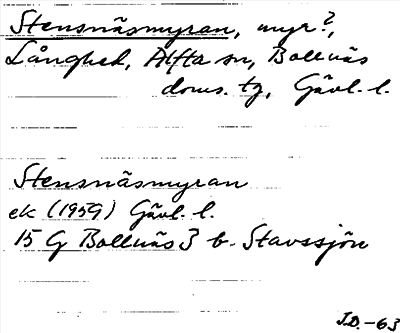 Stensnäsmyran, myr?,
Långhed, Alfta sn, Bollnäs
doms. tg, Gävl. l.
Stensnäsmyran
ek (1959) Gävl. l.
15 G Bollnäs 3 b. Stavssjön
I.D. -63